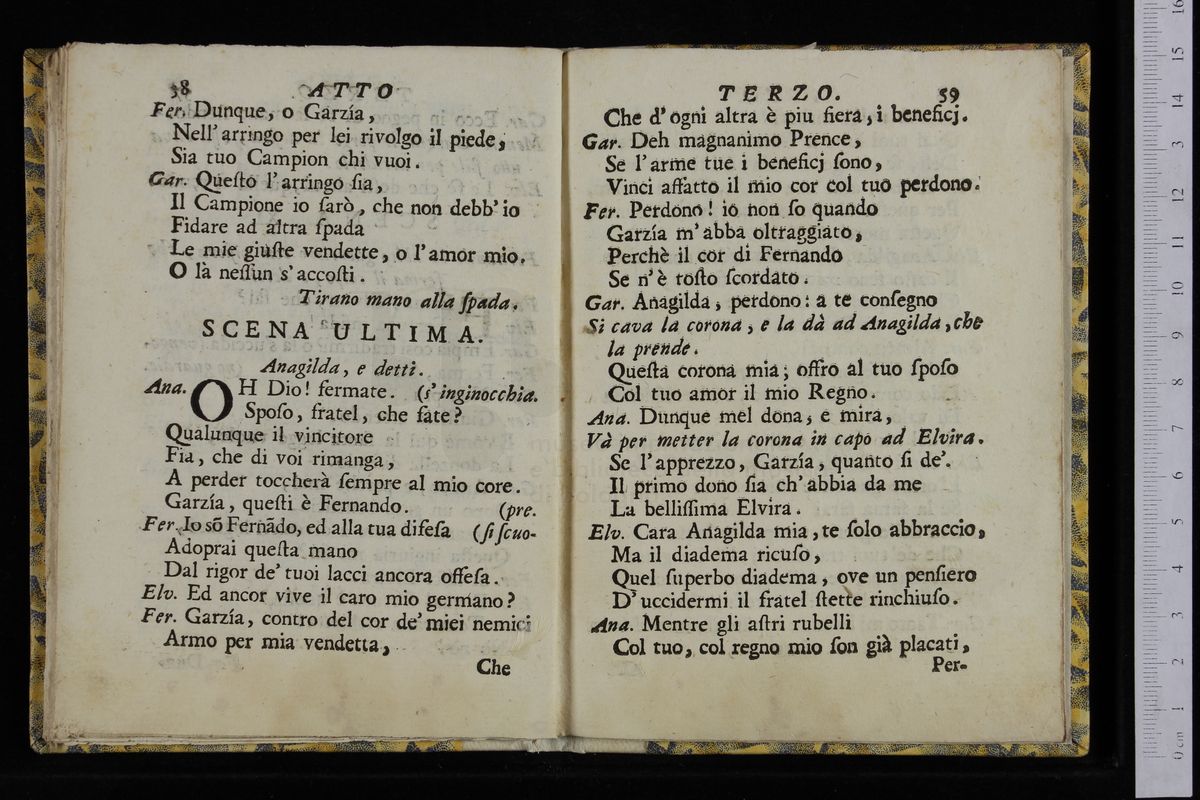 38 ATTO
Fer. Dunque, o Garzía,
Nell'arringo per lei rivolgo il piede,
Sia tuo Campion chi vuoi.
Gar. Queſto l'arringo ſia,
Il Campione io ſarò, che non debb'io
Fidare ad altra ſpada
Le mie giuſte vendette, o l'amor mio.
O là neſſun s'accoſti.
Tirano mano alla ſpada.
SCENA ULTIMA.
Anagilda, e detti.
Ana. OH Dio! fermate. (s'inginocchia.
Spoſo, fratel, che fate?
Qualunque il vincitore
Fia, che di voi rimanga,
A perder toccherà ſempre al mio core.
Garzía, queſti è Fernando. (pre.
Fer. Io sõ Fernãdo, ed alla tua difeſa (ſi ſcuo-
Adoprai queſta mano
Dal rigor de' tuoi lacci ancora offeſa.
Elv. Ed ancor vive il caro mio germano?
Fer. Garzía, contro del cor de' miei nemici
Armo per mia vendetta,
Che
TERZO. 59
Che d'ogni altra è piu fiera, i beneficj.
Gar. Deh magnanimo Prence,
Se l'arme tue i beneficj ſono,
Vinci affatto il mio cor col tuo perdono.
Fer. Perdono! io non ſo quando
Garzía m'abba oltraggiato,
Perchè il cor di Fernando
Se n'è toſto ſcordato.
Gar. Anagilda, perdono: a te conſegno
Si cava la corona, e la dà ad Anagilda, che
la prende.
Queſta corona mia; offro al tuo ſpoſo
Col tuo amor il mio Regno.
Ana. Dunque mel dona, e mira,
Và per metter la corona in capo ad Elvira.
Se l'apprezzo, Garzía, quanto ſi de'.
Il primo dono ſia ch'abbia da me
La belliſſima Elvira.
Elv. Cara Anagilda mia, te ſolo abbraccio,
Ma il diadema ricuſo,
Quel ſuperbo diadema, ove un penſiero
D'uccidermi il fratel ſtette rinchiuſo.
Ana. Mentre gli aſtri rubelli
Col tuo, col regno mio ſon già placati,
Per-
0 cm 1 2 3 4 5 6 7 8 9 10 11 12 13 14 15 16